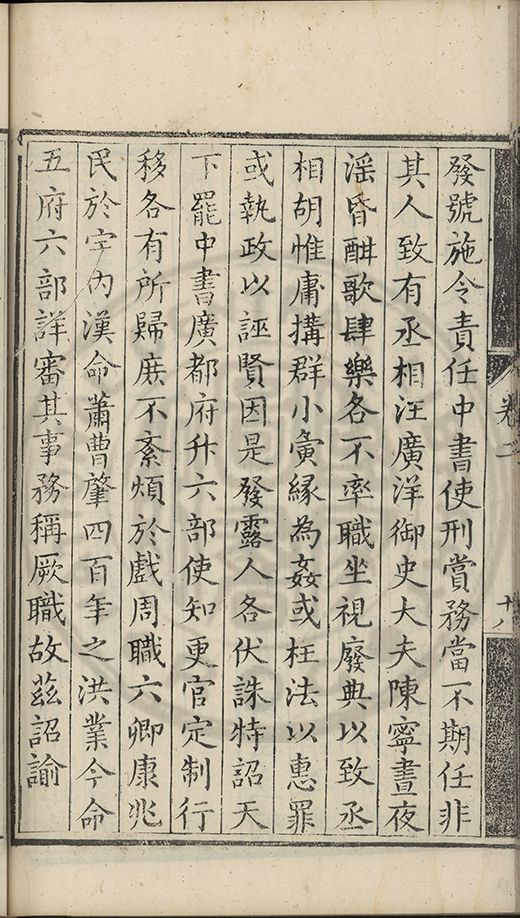 發號施令責任中書使刑賞務當不期任非
其人致有丞相汪廣洋御史大夫陳寧晝夜
淫昏酣歌肆樂各不率職坐視廢典以致丞
相胡惟庸搆群小夤緣為姦或枉法以惠罪
或執政以誣賢因是發露人各伏誅特詔天
下罷中書廣都府升六部使知更官定制行
移各有所歸庶不紊煩於戲周職六卿康兆
民於宇內漢命蕭曹肇四百年之洪業今命
五府六部詳審其事務稱厥職故茲詔諭
卷二
十八